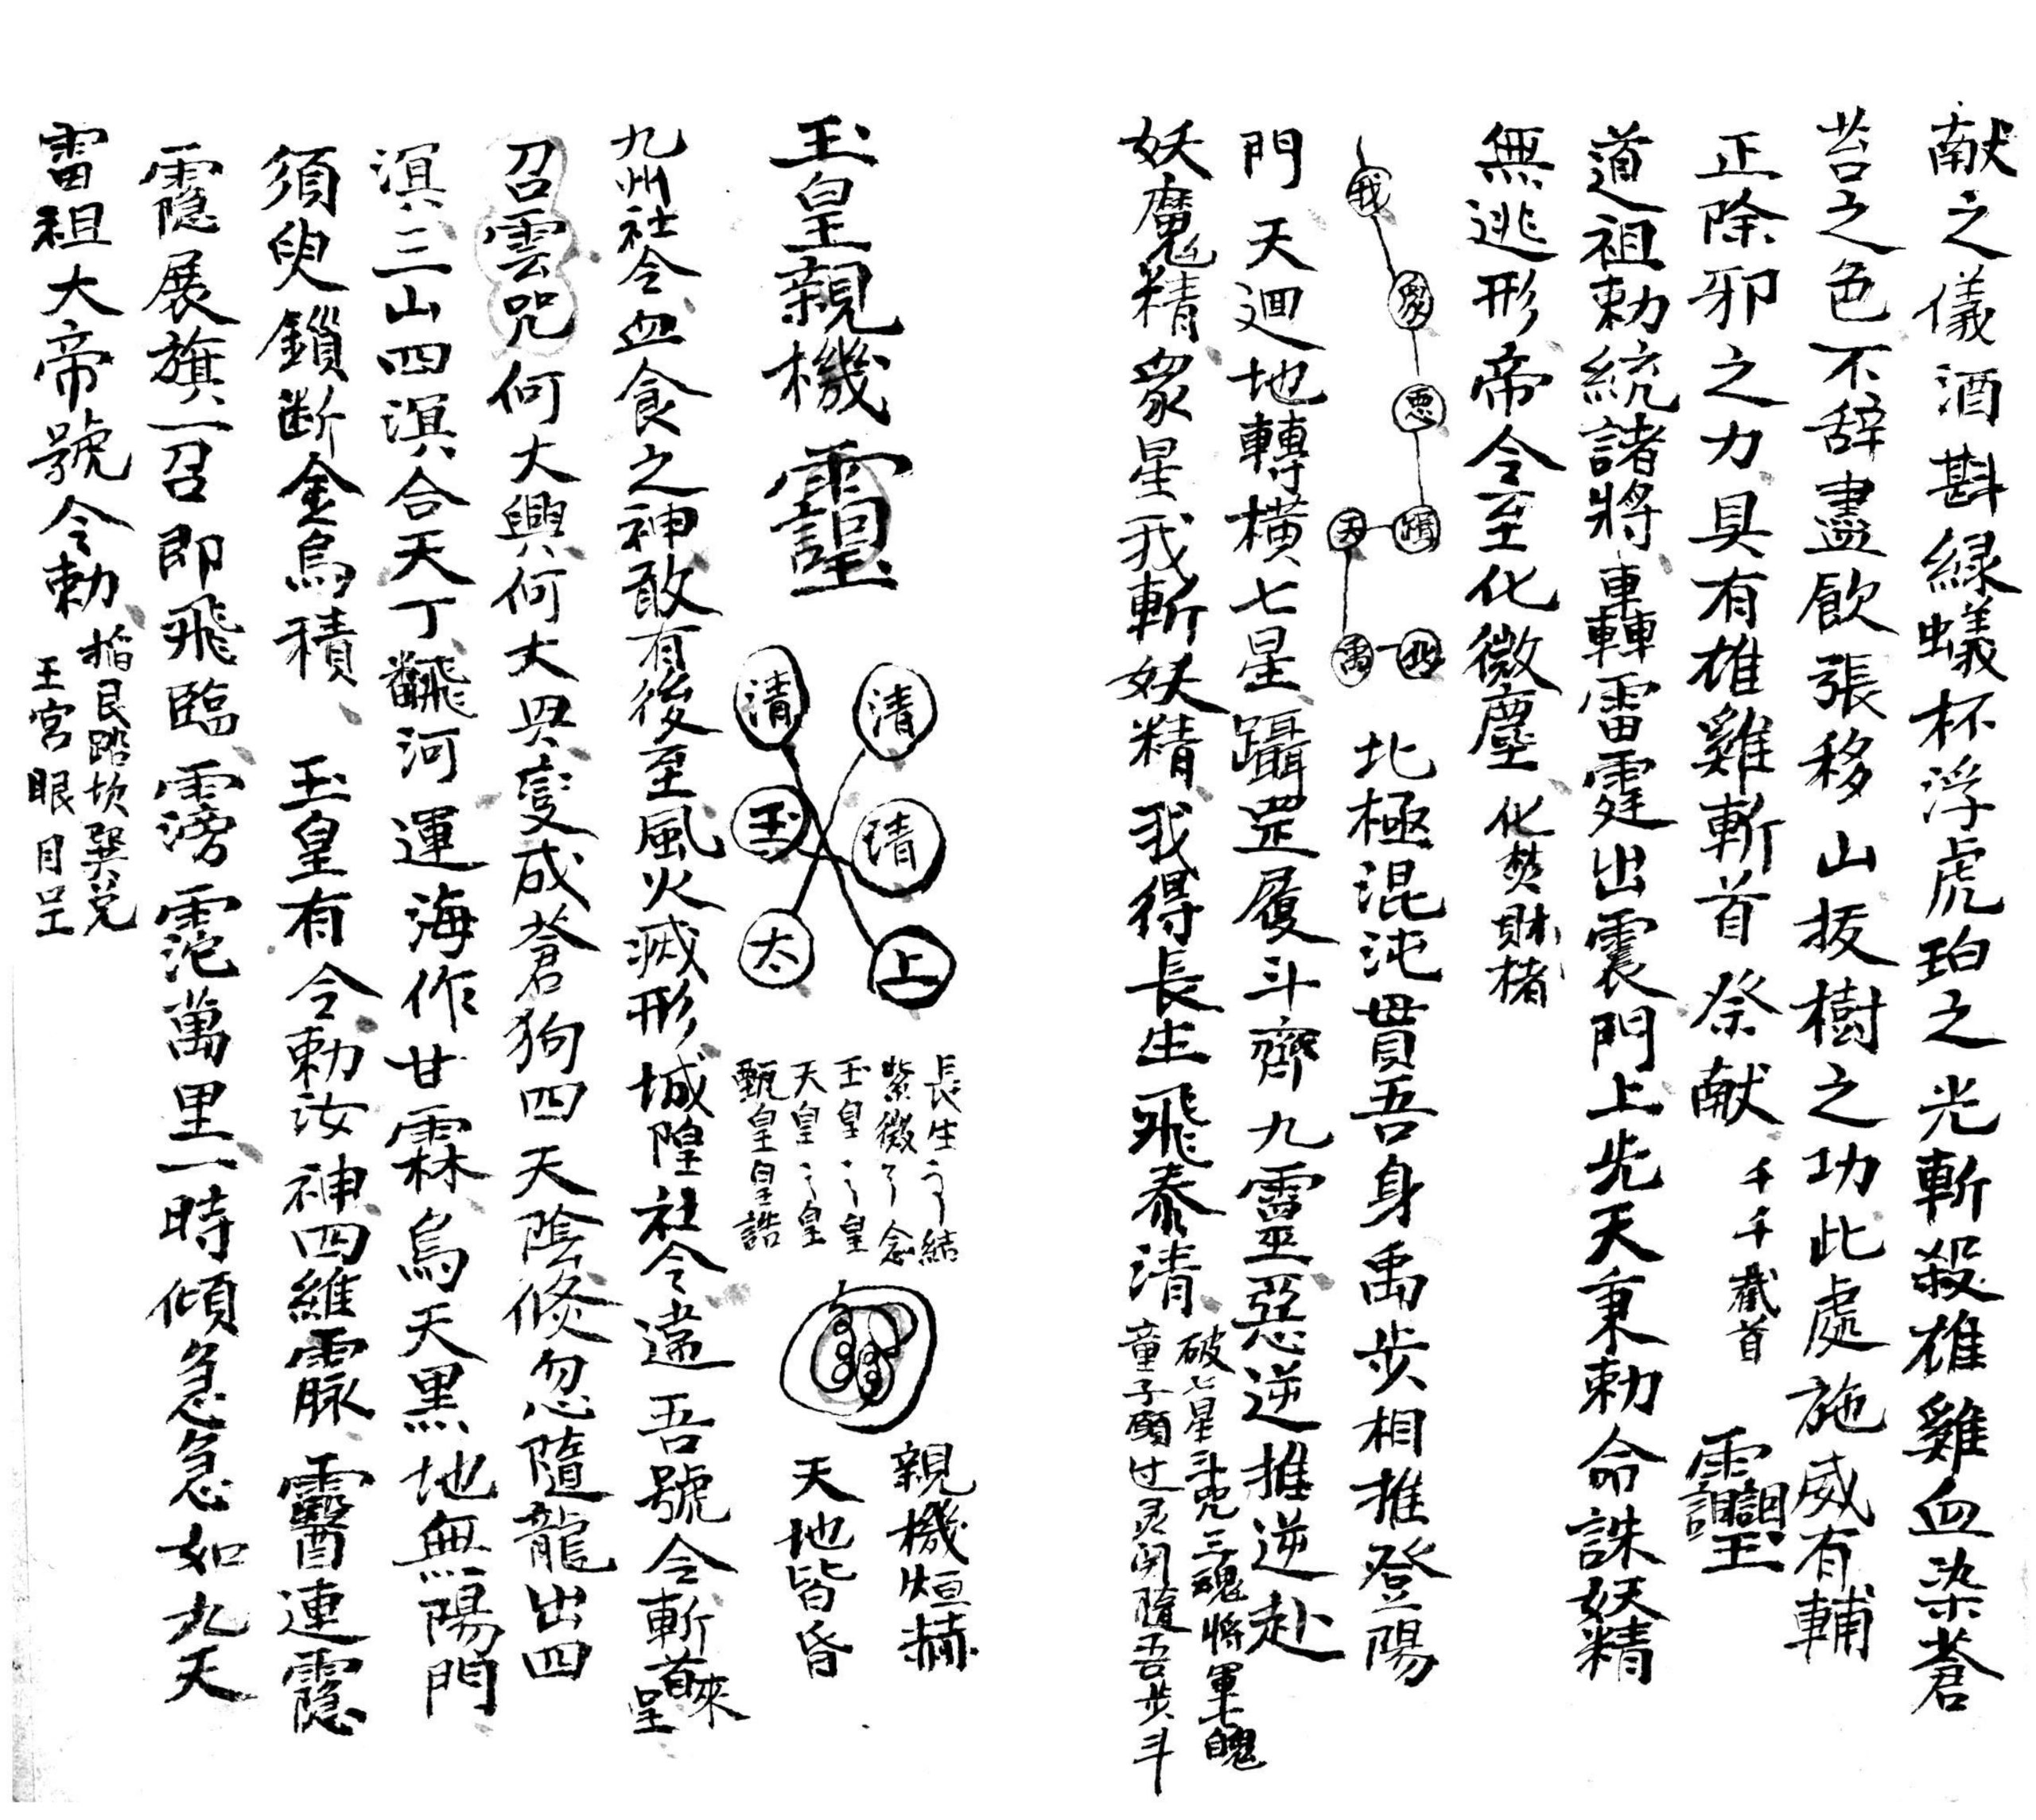 献之儀酒斟綠蟻杯浮虎珀之光斬殺雄雞血染蒼
苔之色不辞盡飲張移山拔樹之功此處施威有輔
正除邪之力具有雄雞斬首祭献 千千截首
道祖勅統諸將轟雷霆出震門上先天秉勅命誅妖精
無逃形帝令至化微塵 化焚財楮
我 象 惡 躡 天 禹 北 北極混沌貫吾身禹步相推登陽
門天迴地轉橫七星躡罡履斗齊九靈惡逆推逆赴
妖魔精眾星我斬妖精我得長生飛泰清 破七星斗兇三魂將軍七魄
童子願过灵関隨吾步斗
玉皇親機
清 清 玉 清 太 上
長生 結
紫微 念
玉皇 皇
天皇 皇
甄皇皇誥
親機烜赫
天地皆昏
九州社令血食之神敢有後至風火滅形城隍社令違吾號令斬首來呈
召雲咒何大興何大異變成蒼狗四天陰倏忽隨龍出四
溟三山四溟合天丁飜河運海作甘霖烏天黑地無陽門
須臾鎖断金烏積 玉皇有令勅汝神四維霢 連
展旗一召即飛臨霶霑萬里一時傾急急如九天
雷祖大帝號令勅 掐艮踏坎巽兑
王宮眼目呈